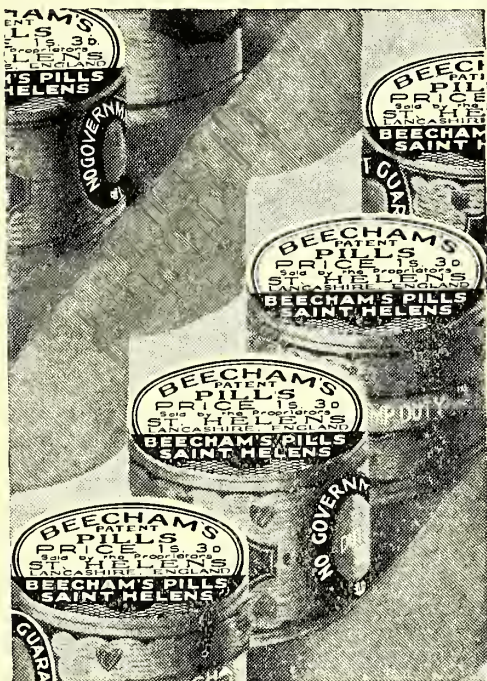 AM'S
ENT
LS
E 1s. 3D
Proprietors
ELENS
E ENGLAND
'S PILLS
HELENS
NO GOVERNM
BEECH
PATE
PIL
PRICE
Sold by the
ST. HE
LANCASHIRE
BEECHAM
SAINT H
T GUAR
BEECHAM'S
PATENT
PILLS
PRICE 1s. 3D
Sold by the Proprietors
ST. HELENS
LANCASHIRE ENGLAND
BEECHAM'S PILLS
SAINT HELENS
MP DUTY
BEECHAM'S
PATENT
PILLS
PRICE 1s. 3D
Sold by the Proprietors
ST. HELENS
LANCASHIRE ENGLAND
BEECHAM'S PILLS
SAINT HELENS
NO GOVERNM
BEECHAM'S
PATENT
PILLS
PRICE 1s. 3D
Sold by the Proprietors
ST. HELENS
LANCASHIRE ENGLAND
BEECHAM'S PILLS
SAINT HELENS
GUARA
CHA